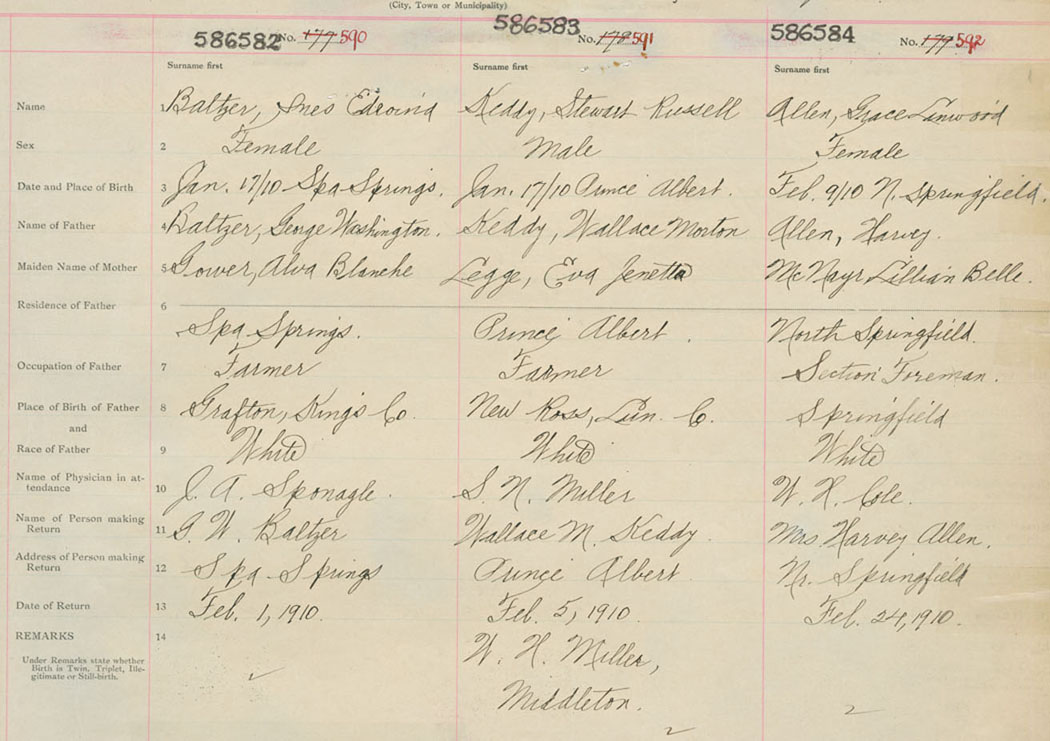 (City, Town or Municipality)
586582 No. 177 590 586583 No. 178 591 586584 No. 179 592
Surname first Surname first Surname first
Name 1 Baltzer, Ines Edwina Keddy, Stewart Russell Allen, Grace Linwood
Sex 2 Female Male Female
Date and Place of Birth 3 Jan. 17/10 Spa Springs. Jan. 17/10 Prince Albert. Feb. 9/10 N. Springfield.
Name of Father 4 Baltzer, George Washington. Keddy, Wallace Morton Allen, Harvey.
Maiden Name of Mother 5 Gower, Alva Blanche Legge, Eva Jenetta McNayr, Lillian Belle.
Residence of Father 6
Spa Springs. Prince Albert. North Springfield.
Occupation of Father 7 Farmer Farmer Section Foreman.
Place of Birth of Father 8 Grafton, Kings Co. New Ross, Lun. C. Springfield
and
Race of Father 9 White White White
Name of Physician in at-
tendance 10 J. A. Sponagle. S. N. Miller W. H. Cole.
Name of Person making
Return 11 G. W. Baltzer Wallace M. Keddy. Mrs Harvey Allen.
Address of Person making
Return 12 Spa Springs Prince Albert Nr. Springfield
Date of Return 13 Feb. 1, 1910. Feb. 5, 1910. Feb. 24, 1910.
REMARKS 14
W. H. Miller,
Under Remarks state whether
Birth is Twin, Triplet, Ille-
gitimate or Still-birth.
Middleton.